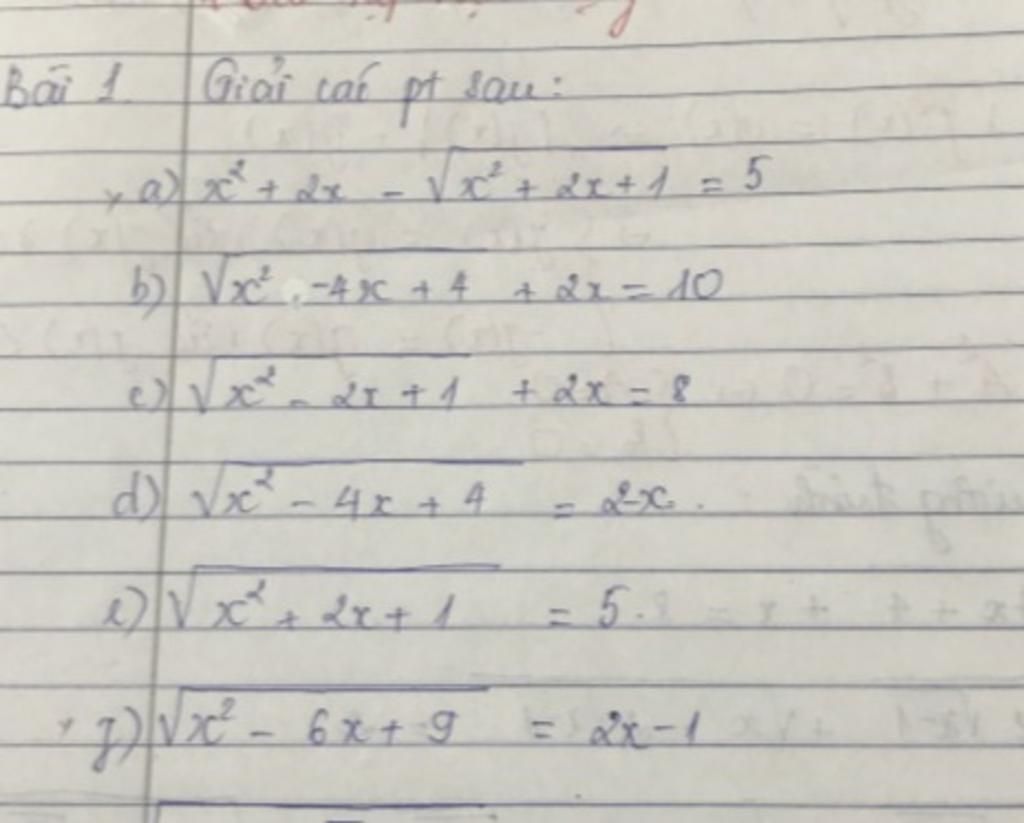 Bài 1. Giải các pt sau:
a) x² + 2x - √(x² + 2x + 1) = 5
b) √(x² - 4x + 4) + 2x = 10
c) √(x² - 2x + 1) + 2x = 8
d) √(x² - 4x + 4) = 2-x.
e) √(x² + 2x + 1) = 5.
f) √(x² - 6x + 9) = 2x - 1